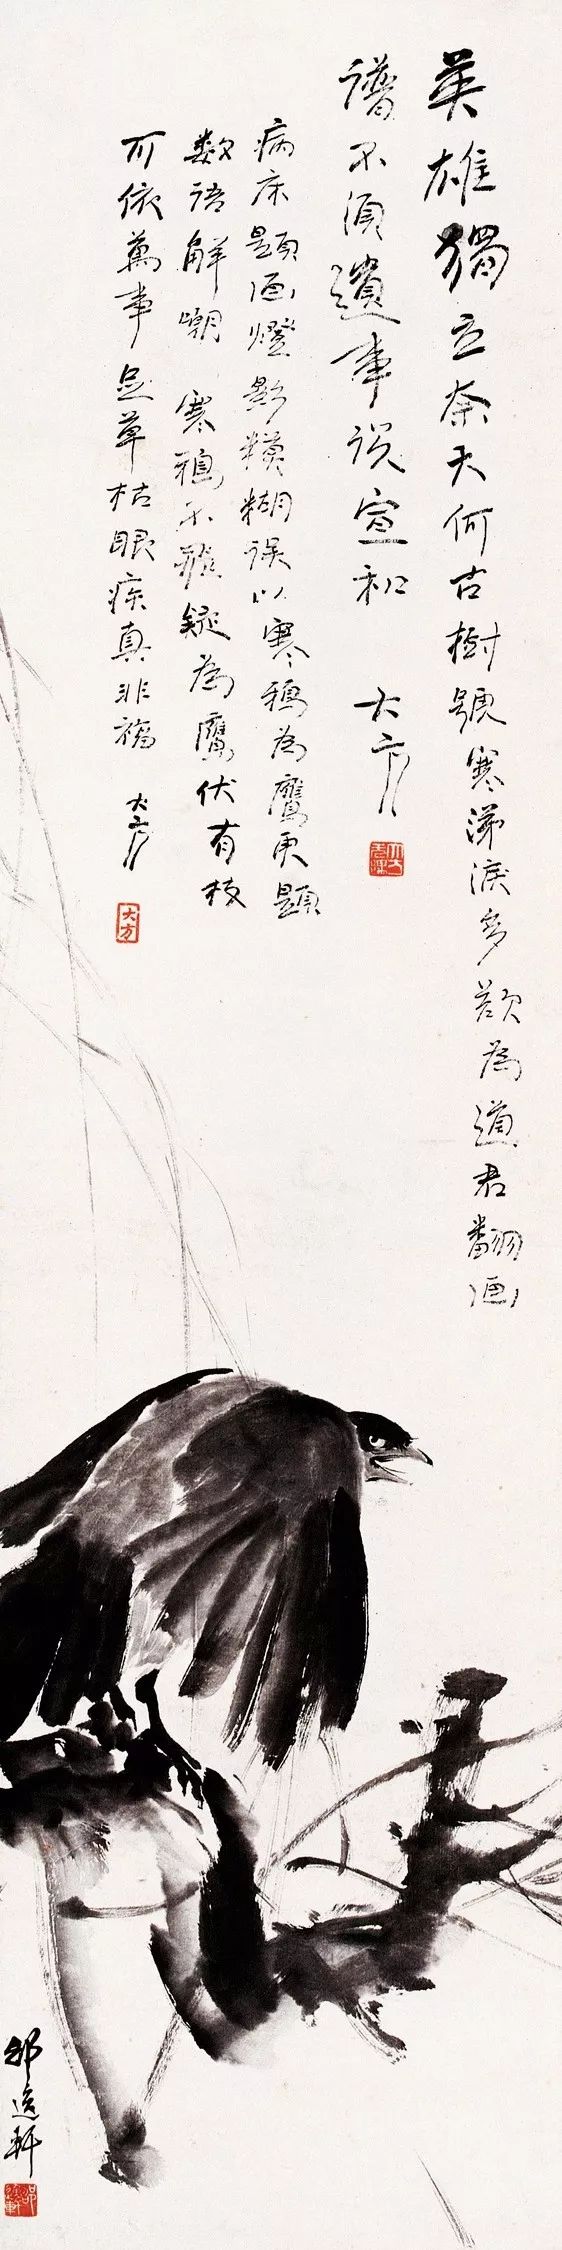 英雄獨立奈天何古樹號寒涕淚多欲為道君翻画
譜不須遺事説宣和
大方
病床題画燈影糢糊误以寒鴉為鷹更題
数语解嘲 寒鴉不飛疑為鷹伏有枝
可依萬事足草枯眼疾真非福
大方
大方
邵逸軒